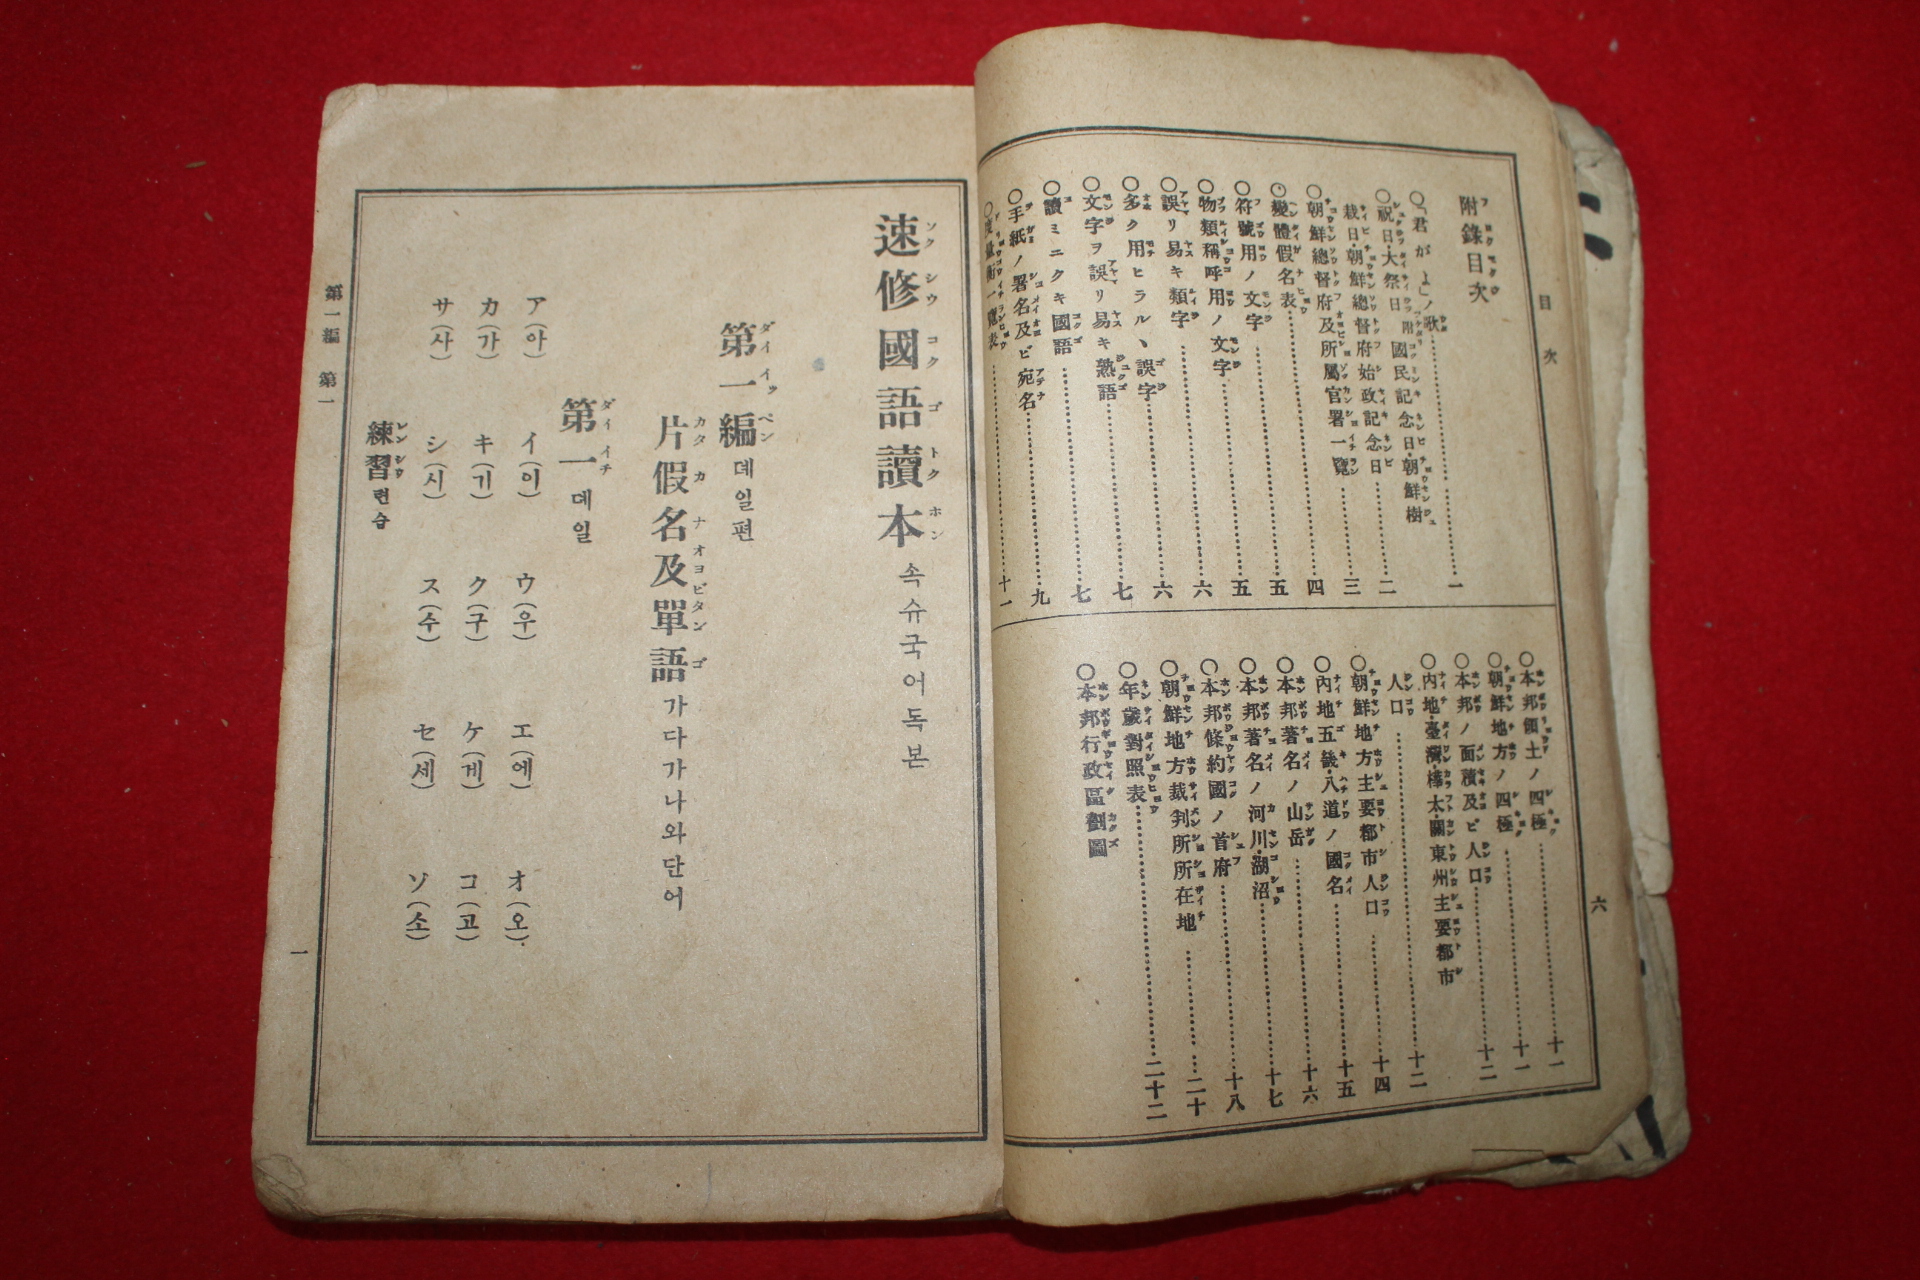 目次
六
附錄目次
○「君がよ」ノ歌 一
○祝日·大祭日 附 國民記念日·朝鮮樹
栽日·朝鮮總督府始政記念日 二
○朝鮮總督府及所屬官署一覽 三
○變體假名表 四
○符號用ノ文字 五
○物類稱呼用ノ文字 五
○誤リ易キ類字 六
○多ク用ヒラルヽ誤字 六
○文字ヲ誤リ易キ熟語 七
○讀ミニクキ國語 七
○手紙ノ署名及ビ宛名 九
○度量衡一覽表 十一
○本邦領土ノ四極 十一
○朝鮮地方ノ四極 十一
○本邦ノ面積及ビ人口 十二
○內地·臺灣·樺太·關東州主要都市
人口 十二
○朝鮮地方主要都市人口 十四
○內地五畿·八道ノ國名 十五
○本邦著名ノ山岳 十六
○本邦著名ノ河川·湖沼 十七
○本邦條約國ノ首府 十八
○朝鮮地方裁判所所在地 二十
○年歲對照表 二十二
○本邦行政區劃圖
速修國語讀本 속슈국어독본
ソクシウコクゴトクホン
第一編 뎨일편
ダイイッペン
片假名及單語 가다가나와단어
カタカナオヨビタンゴ
第一 뎨일
ダイイチ
ア(아) イ(이) ウ(우) エ(에) オ(오)
カ(가) キ(기) ク(구) ケ(게) コ(고)
サ(사) シ(시) ス(수) セ(세) ソ(소)
練習 련습
レンシウ
第一編 第一
一